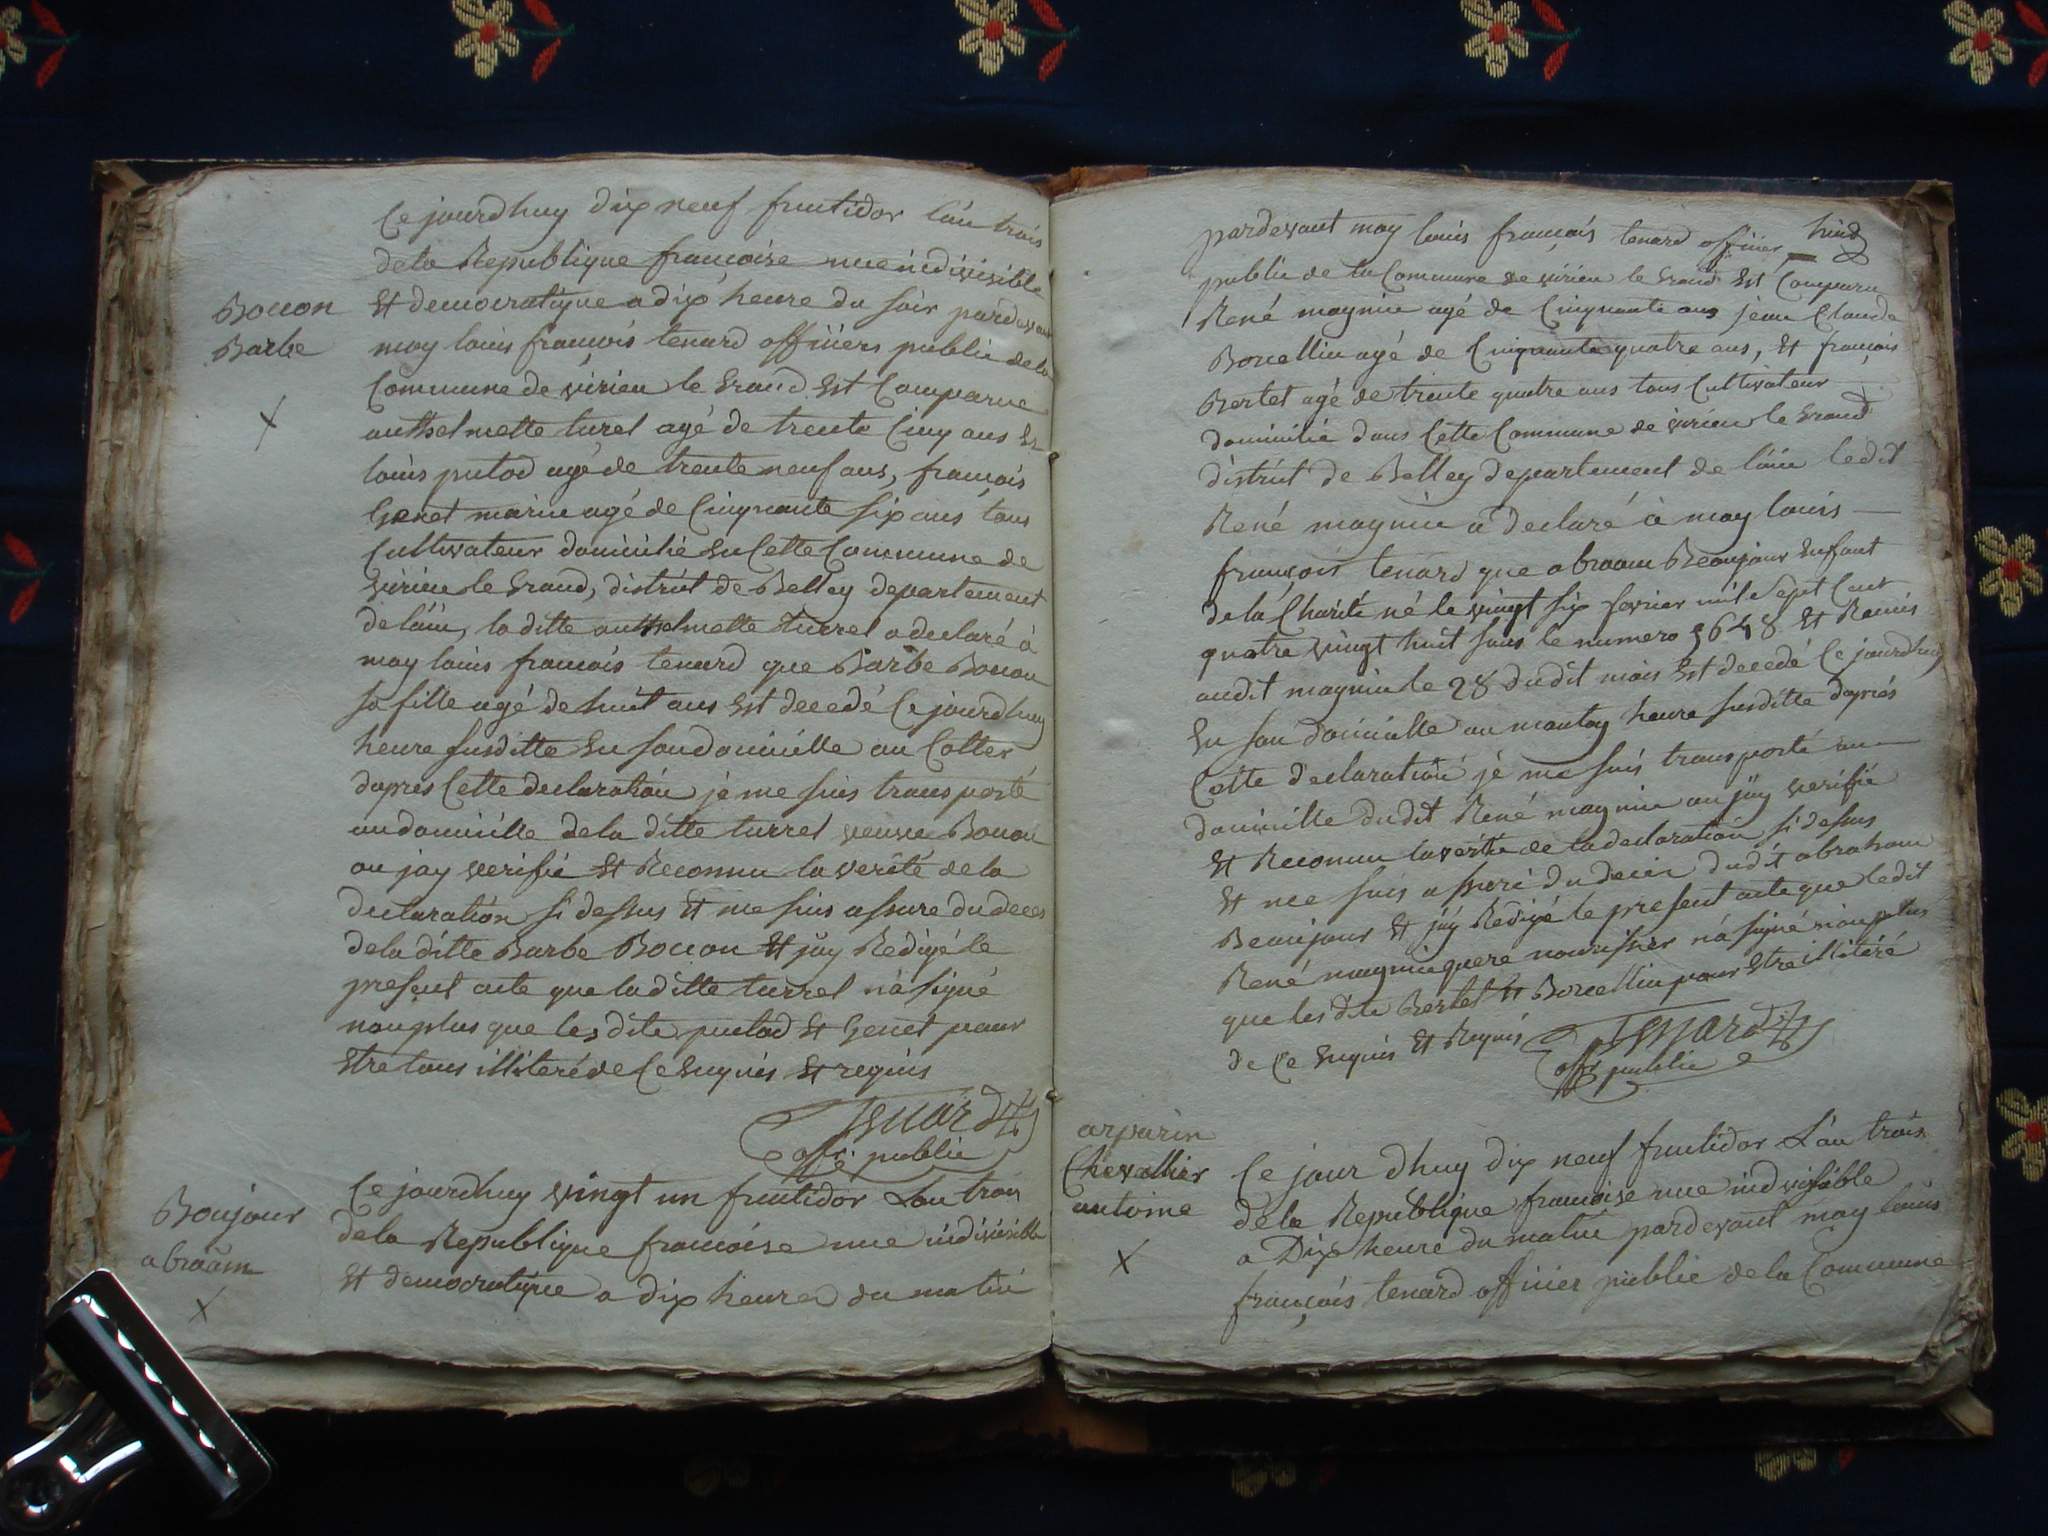 Ce jourdhuy dix neuf fructidor l'an trois
de la Republique francoise une indivisible
Bocon
Barbe
et democratique a dix heure du soir pardevant
moy louis francois tenard officiers public de la
Commune de virieu le Grand est Comparue
anthelmette turel agé de trente Cinq ans et
louis putod agé de trente neuf ans, francois
Genet marin agé de Cinquante six ans tous
Cultivateur domicilié en Cette Commune de
virieu le Grand, district de Belley departement
de l'ain, la ditte anthelmette turrel a declaré à
moy louis francois tenard que Barbe Bocon
sa fille agé de huit ans est decedé Ce jourdhuy
heure susditte en son domicille au
dapres Cette declaration je me suis transporté
au domicille de la ditte turrel veuve Bocon
ou jay verifié et Reconnu la verité de la
declaration si dessus et me suis assure du deces
de la ditte Barbe Bocon et j'ay Redigé le
present acte que la ditte turrel n'a signé
non plus que les dits putod et Genet pour
etre tous illiteré de Ce enquis et requis
Tenard
offr. public
Boujour
abraam
Ce jourdhuy vingt un fructidor L'an trois
de la Republique francoise une indivisible
et democratique a dix heures du matin
pardevant moy louis francois tenard officier
public de la Commune de virieu le Grand est Comparu
René magnin agé de Cinquante ans jean Claude
Borcellin agé de Cinquante quatre ans, et francois
Bertet agé de trente quatre ans tous Cultivateur
domicilié dans Cette Commune de virieu le Grand
district de Belley departement de l'ain ledit
René magnin a declaré à moy louis
francois tenard que abraam Beaujour enfant
de la Charité né le vingt six fevrier mil Sept Cent
quatre vingt huit sous le numero 5648 et Remis
audit magnin le 28 dudit mois est decedé Ce jourdhuy
en son domicille au montay heure susditte dapriés
Cette declaration je me suis transporté au
domicille dudit René magnin ou j'ay verifié
et Reconnu la verité de la declaration si dessus
et me suis assuré du decés dudit abraham
Beaujour et j'ay Redigé le present acte que ledit
René magnin pere nourissier n'a signé non plus
que les dits Bertet et Borcellin pour etre illiteré
de Ce enquis et Requis
Tenard
offr. public
arparin
Chevallier
antoine
Ce jour dhuy dix neuf fructidor L'an trois
de la Republique francoise une indivisible
a Dix heure du matin pardevant moy louis
françois tenard officier public de la Commune